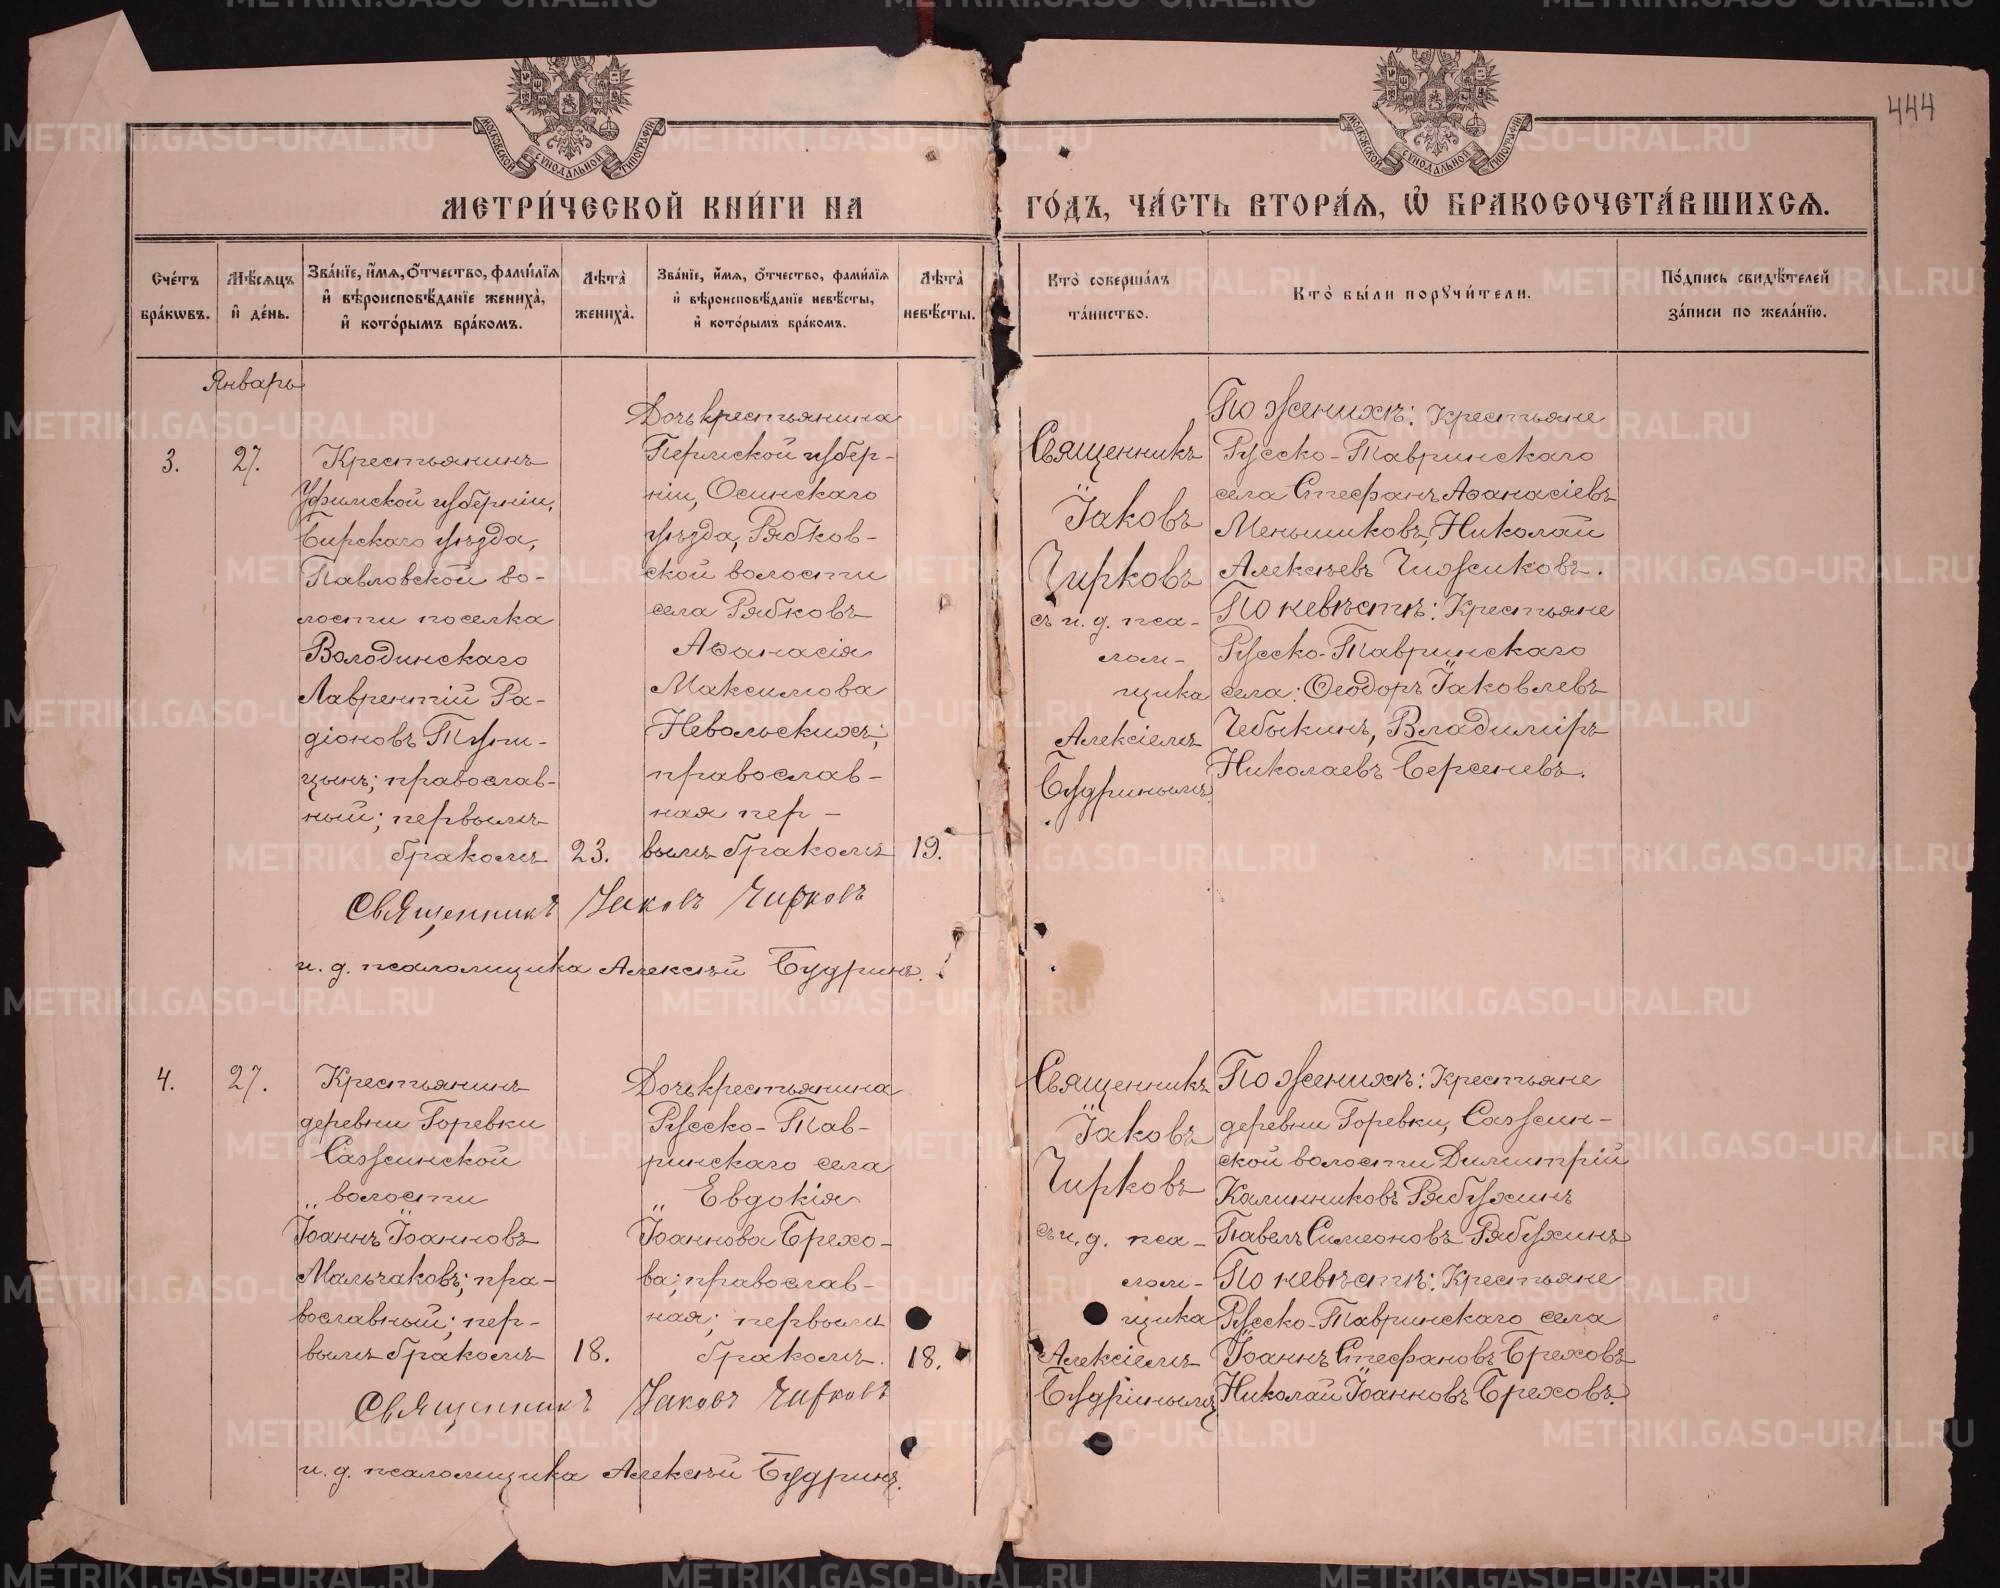 444
МОСКОВСКОЙ СѴНОДАЛЬНОЙ ТИПОГРАФІИ
МОСКОВСКОЙ СѴНОДАЛЬНОЙ ТИПОГРАФІИ
МЕТРИ́ЧЕСКОЙ КНИ́ГИ НА ГО́ДЪ, ЧА́СТЬ ВТОРА́Я, Ѡ БРАКОСОЧЕТА́ВШИХСЯ.
Сче́тъ
бра́кωвъ.
Мѣ́сяцъ
и де́нь.
Зва́нїе, и́мя, о́тчество, фами́лїя
и вѣроисповѣ́данїе жениха̀,
и кото́рымъ бра́комъ.
Лѣта̀
жениха̀.
Зва́нїе, и́мя, о́тчество, фами́лїя
и вѣроисповѣ́данїе невѣ́сты,
и кото́рымъ бра́комъ.
Лѣта̀
невѣ́сты.
Кто̀ соверша́лъ
та́инство.
Кто̀ бы́ли пору́чи́тели.
По́дпись свидѣ́телей
за́писи по жела́нїю.
Январь
3.
27.
Крестьянинъ
Уфимской губерніи,
Бирскаго уѣзда,
Павловской во-
лости поселка
Володинскаго
Лаврентій Ра-
діоновъ Тупи-
цынъ; православ-
ный; первымъ
бракомъ
23.
Дочь крестьянина
Пермской губер-
ніи, Осинскаго
уѣзда, Рябков-
ской волости
села Рябковъ
Аѳанасія
Максимова
Невольскихъ;
православ-
ная пер-
вымъ бракомъ
19.
Священникъ
Іаковъ
Чирковъ
съ и. д. пса-
лом-
щика
Алексіемъ
Будринымъ.
По женихѣ: Крестьяне
Русско-Тавринскаго
села Стефанъ Аѳанасіевъ
Меньшиковъ, Николай
Алексѣевъ Чижиковъ.
По невѣстѣ: Крестьяне
Русско-Тавринскаго
села: Ѳеодоръ Іаковлевъ
Чебыкинъ, Владиміръ
Николаевъ Берсеневъ.
Священникъ Іаковъ Чирковъ
и. д. псаломщика Алексѣй Будринъ.
4.
27.
Крестьянинъ
деревни Горевки
Сажинской
волости
Іоаннъ Іоанновъ
Мальчаковъ; пра-
вославный; пер-
вымъ бракомъ
18.
Дочь крестьянина
Русско-Тав-
ринскаго села
Евдокія
Іоаннова Брехо-
ва; православ-
ная; первымъ
бракомъ.
18.
Священникъ
Іаковъ
Чирковъ
съ и. д. пса-
лом-
щика
Алексіемъ
Будринымъ
По женихѣ: Крестьяне
деревни Горевки, Сажин-
ской волости Димитрій
Калинниковъ Рябухинъ
Павелъ Симеоновъ Рябухинъ
По невѣстѣ: Крестьяне
Русско-Тавринскаго села
Іоаннъ Стефановъ Бреховъ
Николай Іоанновъ Бреховъ.
Священникъ Іаковъ Чирковъ
и. д. псаломщика Алексѣй Будринъ.
METRIKI.GASO-URAL.RU